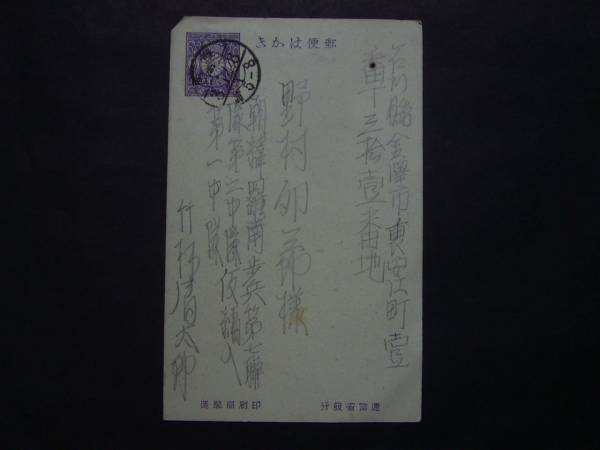 郵便はがき
石川縣金澤市東安江町壹
番丁三拾壹番地
野村卯三郎様
朝鮮羅南歩兵第七聯
隊第二中隊仮編入
第一中隊
竹林清太郎
逓信省発行
印刷局製造